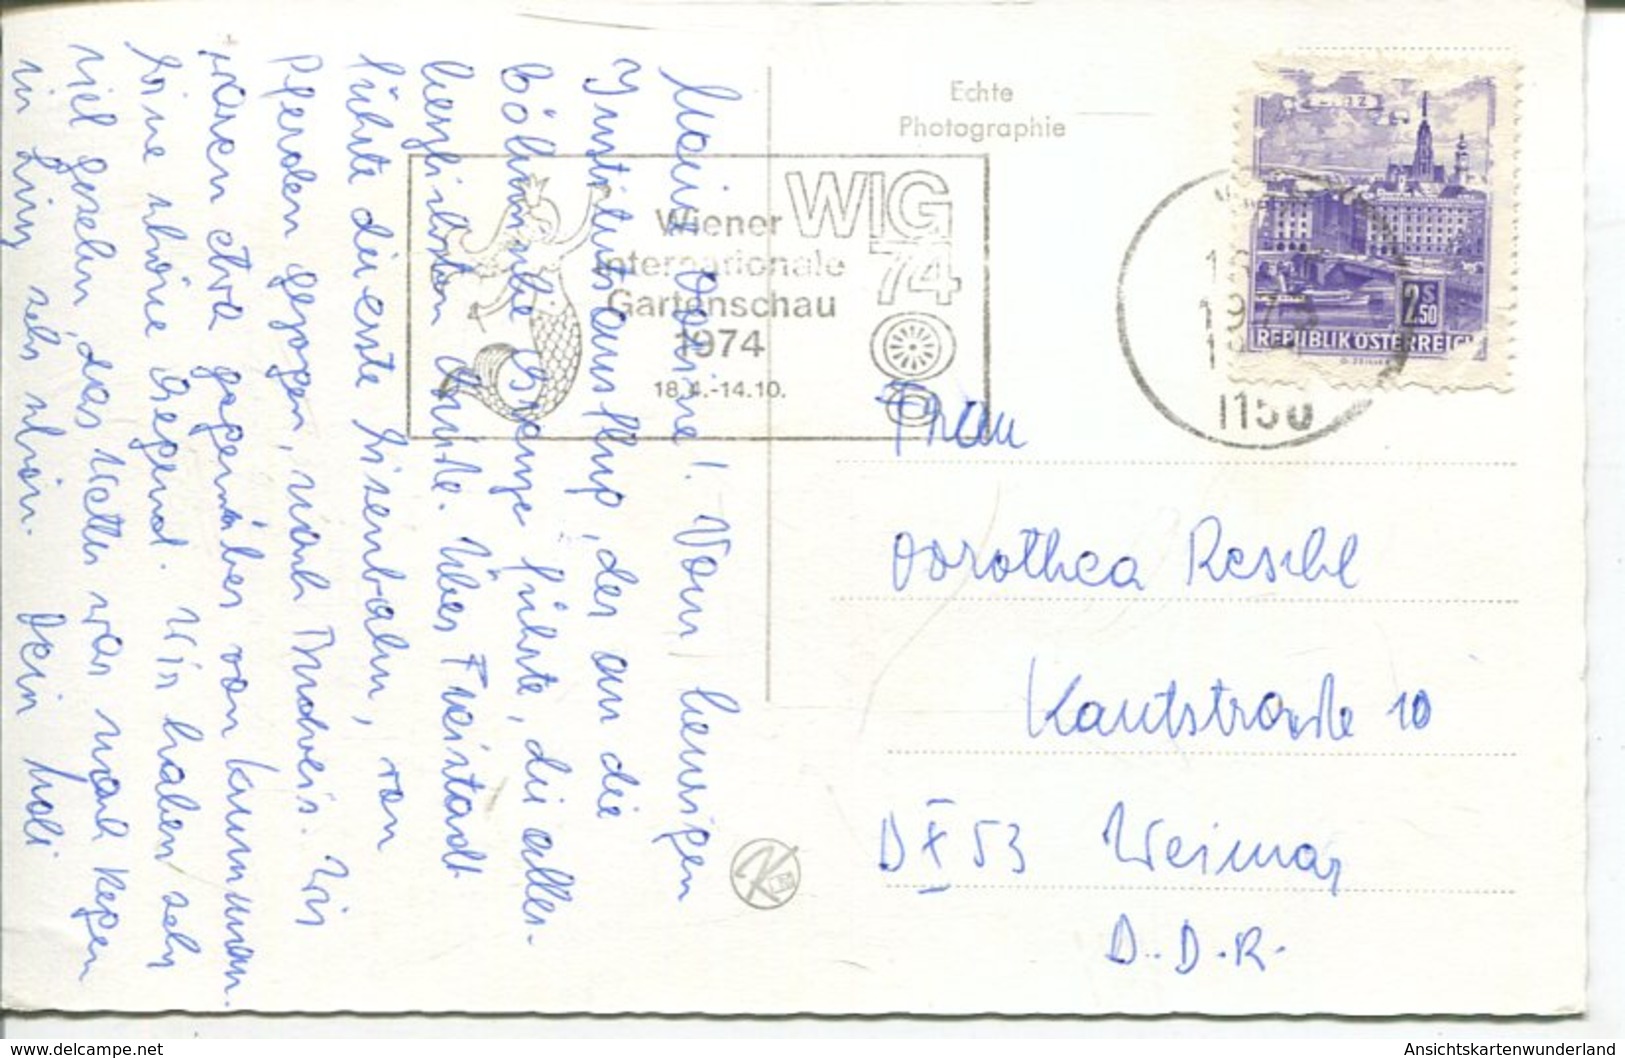 Meine Dorine! Vom heurigen
Institutsausflug, der an die
böhmische Grenze führte, die aller-
herzlichsten Grüße. Über Freistadt
führte die erste Eisenbahn, von
Pferden gezogen, nach Budweis. Wir
waren etwa gegenüber von Krummau.
Eine schöne Gegend. Wir haben sehr
viel gesehn, das Wetter war nach Regen
in Linz sehr schön. Dein
Echte
Photographie
Wiener
Internationale
Gartenschau
1974
18.4.-14.10.
WIG
74
1150
2S
50
REPUBLIK ÖSTERREICH
Frau
Dorothea Reschl
Kantstraße 10
DX 53 Weimar
D.D.R.
K
Ansichtskartenwunderland
www.delcampe.net